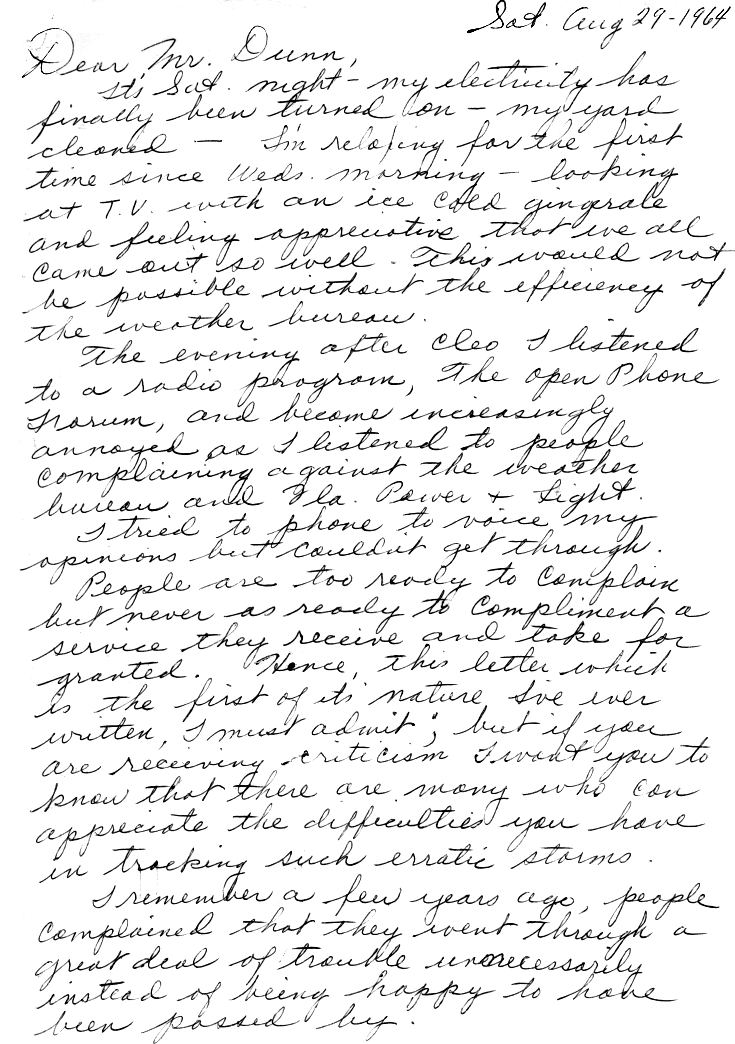 Sat. Aug 29-1964
Dear Mr. Dunn,
It's Sat. night - my electricity has
finally been turned on - my yard
cleaned - I'm relaxing for the first
time since Weds. morning - looking
at T.V. with an ice cold gingerale
and feeling appreciative that we all
came out so well. This would not
be possible without the efficiency of
the weather bureau.
The evening after Cleo I listened
to a radio program, The open Phone
Forum, and became increasingly
annoyed as I listened to people
complaining against the weather
bureau and Fla. Power + Light.
I tried to phone to voice my
opinions but couldn't get through.
People are too ready to complain
but never as ready to compliment a
service they receive and take for
granted. Hence, this letter which
is the first of its nature I've ever
written, I must admit; but if you
are receiving criticism I want you to
know that there are many who can
appreciate the difficulties you have
in tracking such erratic storms.
I remember a few years ago, people
complained that they went through a
great deal of trouble unnecessarily
instead of being happy to have
been passed by.